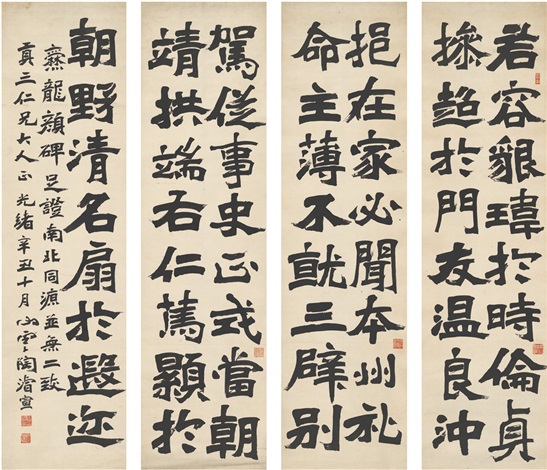 若容貌瑋於時倫貞
操超於門友温良沖
挹在家必聞本州礼
命主薄不就三辟別
駕從事史正式當朝
靖拱端右仁篤顯於
朝野清名扇於遐迩
爨龍顏碑足證南北同源並無二致
真三仁兄大人正 光緒辛丑十月 心雲陶濬宣